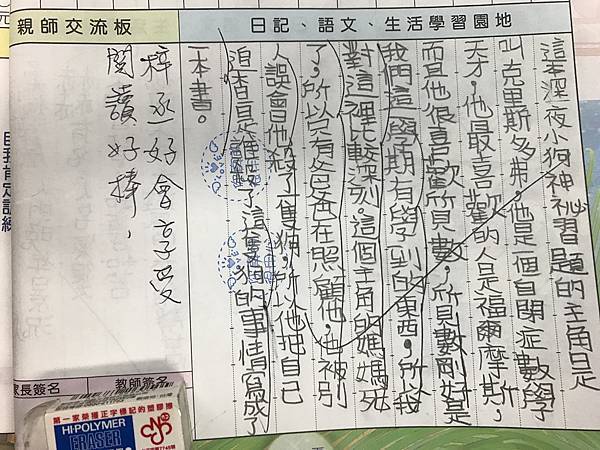 日記、語文、生活學習園地
這本深夜小狗神祕習題的主角是
叫克里斯多弗,他是個自閉症數學
天才,他最喜歡的人是福爾摩斯,
而且他很喜歡質數,質數剛好是
我們這學期有學到的東西,所以我
對這裡比較深刻。這個主角的媽媽死
了,所以只有爸爸在照顧他,他被別
人誤會他殺了隻狗,所以他把自己
追查是誰殺了這隻狗的事情寫成了
一本書。
親師交流板
梓丞好會享受
閱讀,好棒,
家長簽名
教師簽名
自我肯定訓練
第一家榮獲正字標記的塑膠擦
HI-POLYMER
ERASER